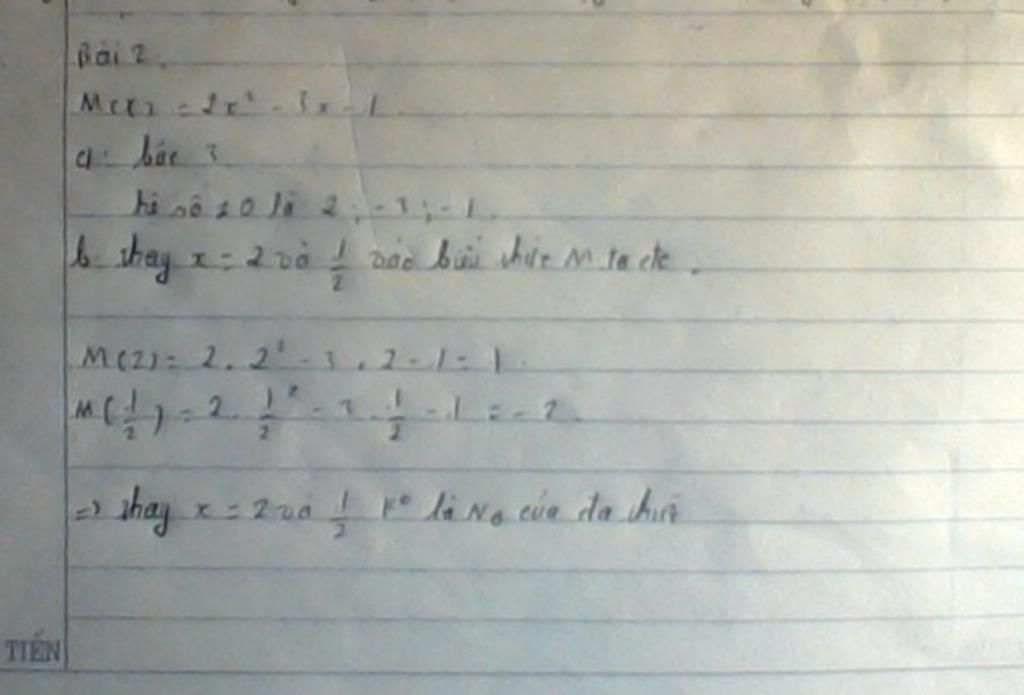 Bài 2.
M(x) = 2x² - 3x - 1
a. bậc 3
hệ số ≠ 0 là 2 ; -3 ; -1.
b. thay x = 2 và 1/2 vào biểu thức M ta đc
M(2) = 2 . 2² - 3 . 2 - 1 = 1.
M(1/2) = 2 . 1/2² - 3 . 1/2 - 1 = -2.
=> thay x = 2 và 1/2 k° là No của đa thức
TIẾN